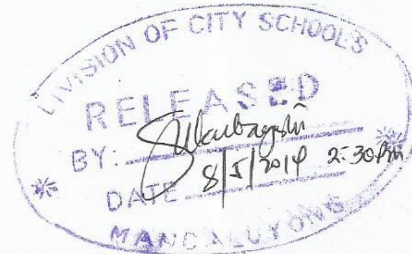 DIVISION OF CITY SCHOOLS
RELEASED
BY:
DATE 8/5/2014 2:30pm
MANDALUYONG